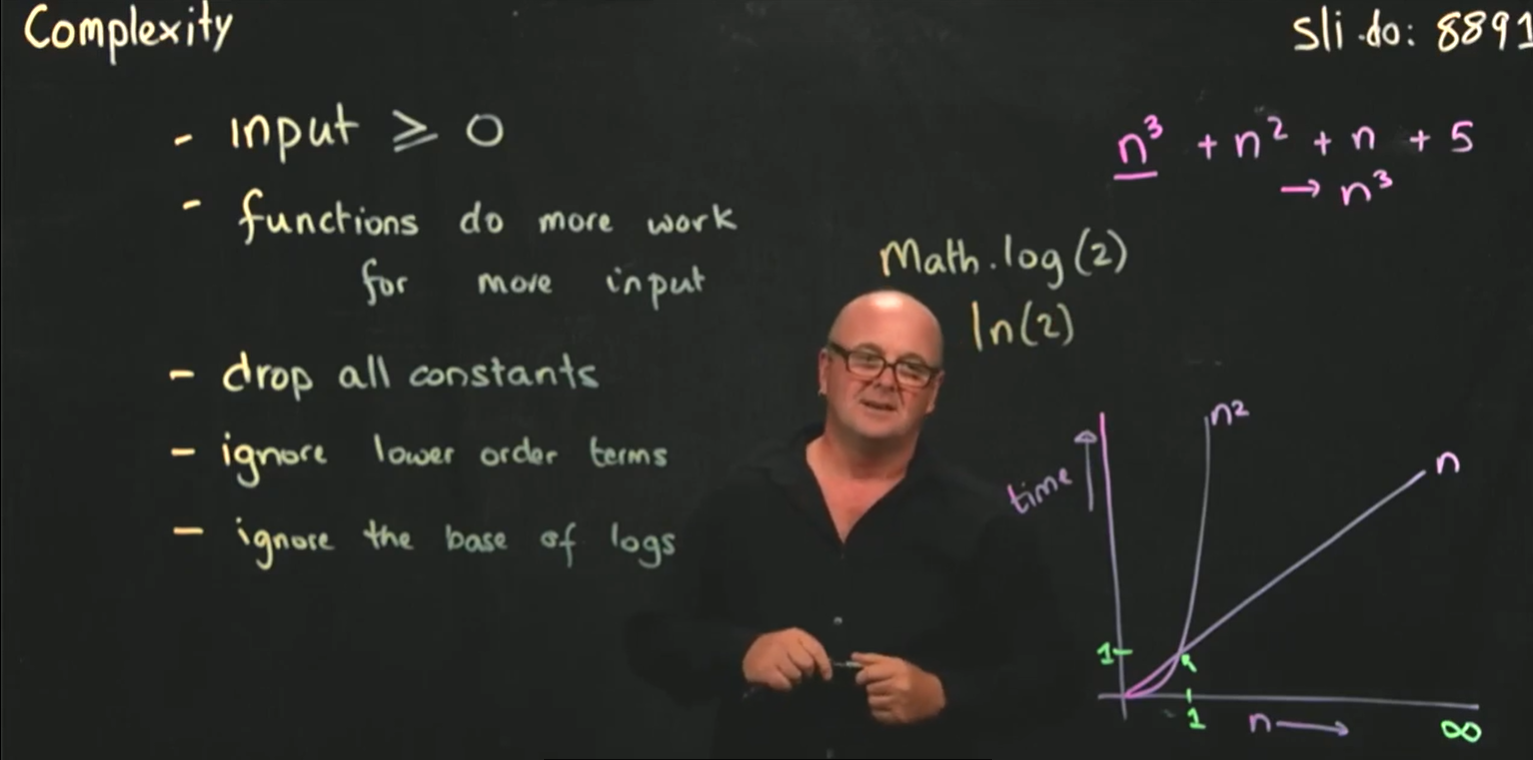 Complexity
Sli.do: 8891
- input ≥ 0
- functions do more work
for more input
- drop all constants
- ignore lower order terms
- ignore the base of logs
n³ + n² + n + 5
→ n³
Math.log(2)
ln(2)
n²
n
time
1
1
n →
∞